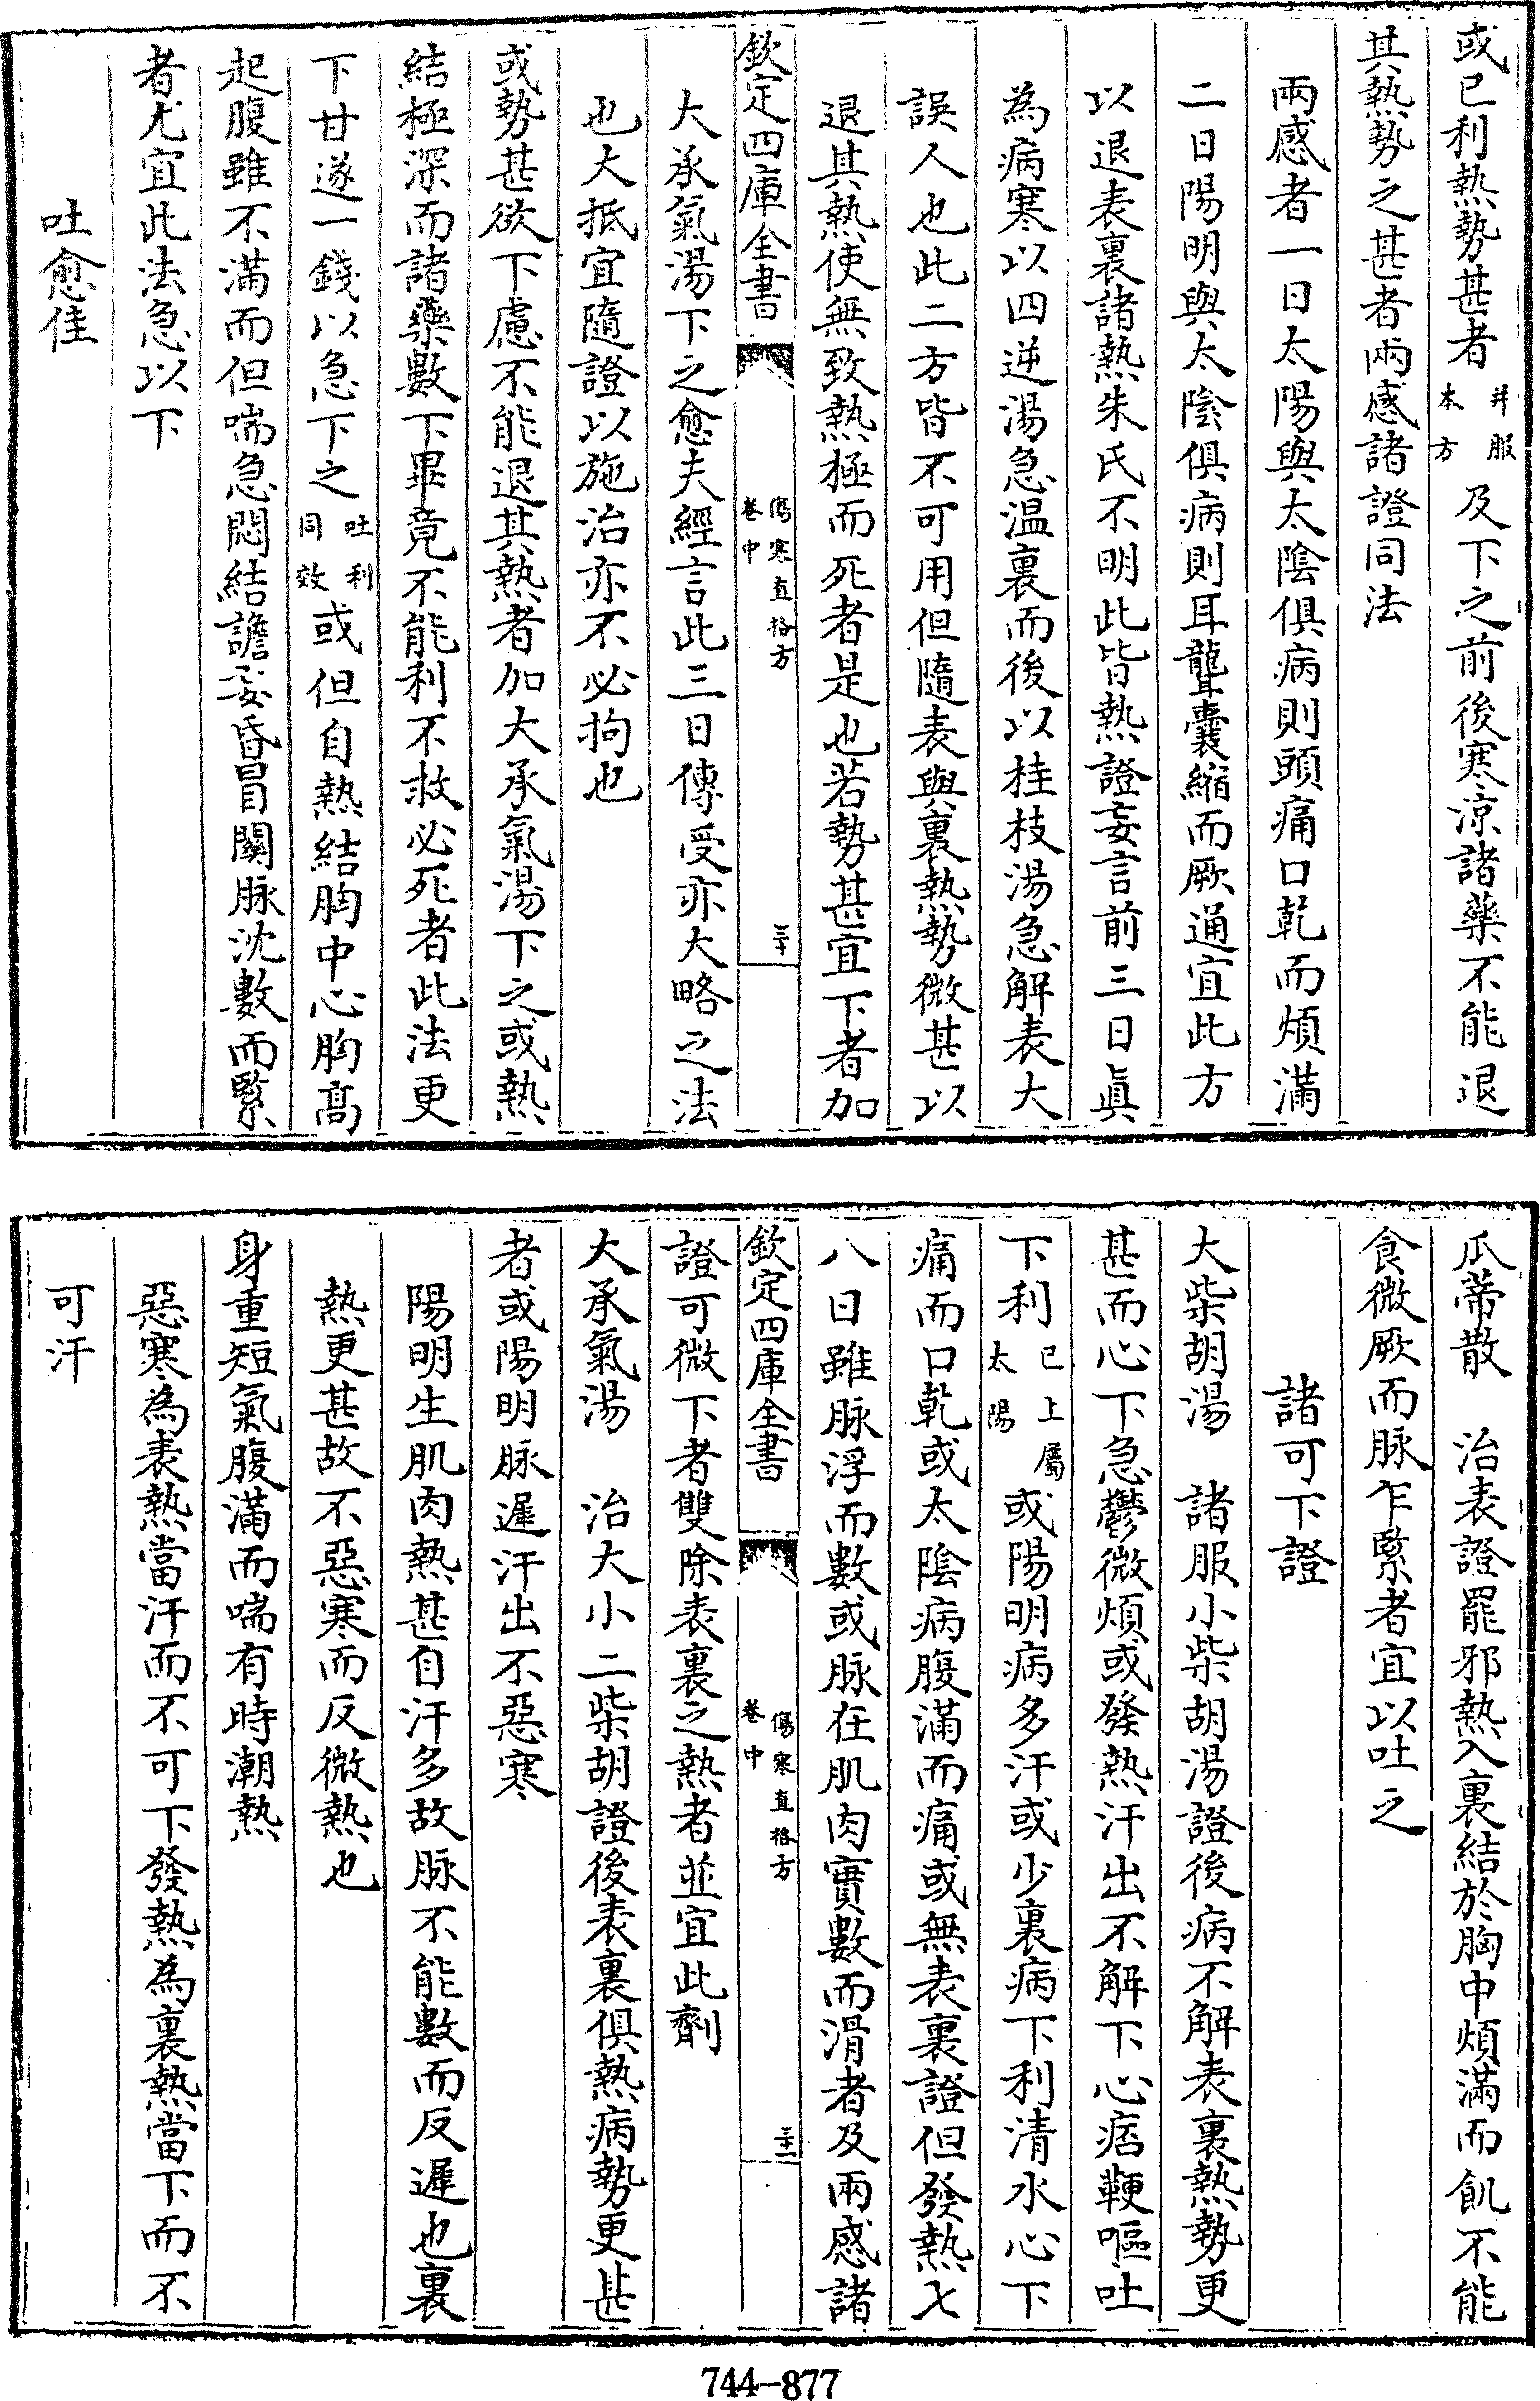 或已利熱勢甚者并服本方及下之前後寒涼諸藥不能退
其熱勢之甚者兩感諸證同法
兩感者一日太陽與太陰俱病則頭痛口乾而煩滿
二日陽明與太陰俱病則耳聾囊縮而厥通宜此方
以退表裏諸熱朱氏不明此皆熱證妄言前三日眞
為病寒以四逆湯急温裏而後以桂枝湯急解表大
誤人也此二方皆不可用但隨表與裏熱勢微甚以
退其熱使無致熱極而死者是也若勢甚宜下者加
欽定四庫全書
傷寒直格方
卷中
三十
大承氣湯下之愈夫經言此三日傳受亦大略之法
也大抵宜隨證以施治亦不必拘也
或勢甚欲下慮不能退其熱者加大承氣湯下之或熱
結極深而諸藥數下畢竟不能利不救必死者此法更
下甘遂一錢以急下之吐利同效或但自熱結胸中心胸高
起腹雖不滿而但喘急悶結譫妄昏冒關脉沈數而緊
者尤宜此法急以下
吐愈佳
瓜蒂散　治表證罷邪熱入裏結於胸中煩滿而飢不能
食微厥而脉乍緊者宜以吐之
諸可下證
大柴胡湯　諸服小柴胡湯證後病不解表裏熱勢更
甚而心下急鬱微煩或發熱汗出不解下心痞鞕嘔吐
下利已上屬太陽或陽明病多汗或少裏病下利清水心下
痛而口乾或太陰病腹滿而痛或無表裏證但發熱七
八日雖脉浮而數或脉在肌肉實數而滑者及兩感諸
欽定四庫全書
傷寒直格方
卷中
三十一
證可微下者雙除表裏之熱者並宜此劑
大承氣湯　治大小二柴胡證後表裏俱熱病勢更甚
者或陽明脉遲汗出不惡寒
陽明生肌肉熱甚自汗多故脉不能數而反遲也裏
熱更甚故不惡寒而反微熱也
身重短氣腹滿而喘有時潮熱
惡寒為表熱當汗而不可下發熱為裏熱當下而不
可汗
744-877